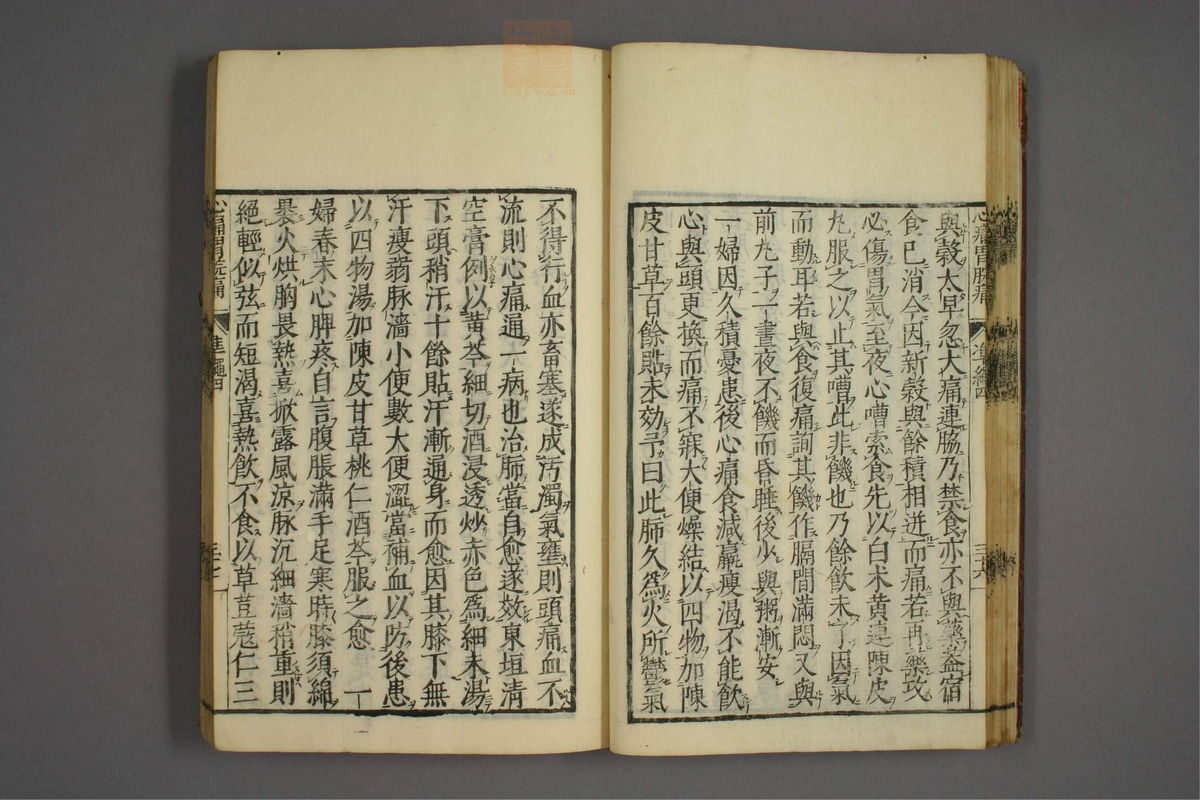 與穀太早忽大痛連脇乃禁食亦不與藥蓋宿
食已消今因新穀與餘積相迸而痛若再藥攻
必傷胃氣至夜心嘈索食先以白朮黃連陳皮
丸服之以止其嘈此非饑也乃餘飲未了因氣
而動耳若與食復痛詢其饑作膈間滿悶又與
前丸子一晝夜不饑而昏睡後少與粥漸安
一婦因久積憂患後心痛食減羸瘦渴不能飲
心與頭更換而痛不寐大便燥結以四物加陳
皮甘草百餘貼未効予曰此肺久為火所鬱氣
心痛胃脘痛 準繩四
不得行血亦畜塞遂成汚濁氣壅則頭痛血不
流則心痛通一病也治肺當自愈遂效東垣清
空膏例以黃芩細切酒浸透炒赤色為細末湯
下頭稍汗十餘貼汗漸通身而愈因其膝下無
汗瘦弱脉濇小便數大便澀當補血以防後患
以四物湯加陳皮甘草桃仁酒芩服之愈 一
婦春末心脾疼自言腹脹滿手足寒時膝須綿
裹火烘胸畏熱喜掀露風凉脉沉細濇稍重則
絕輕似弦而短渴喜熱飲不食以草荳蔻仁三
心痛胃脘痛 準繩四